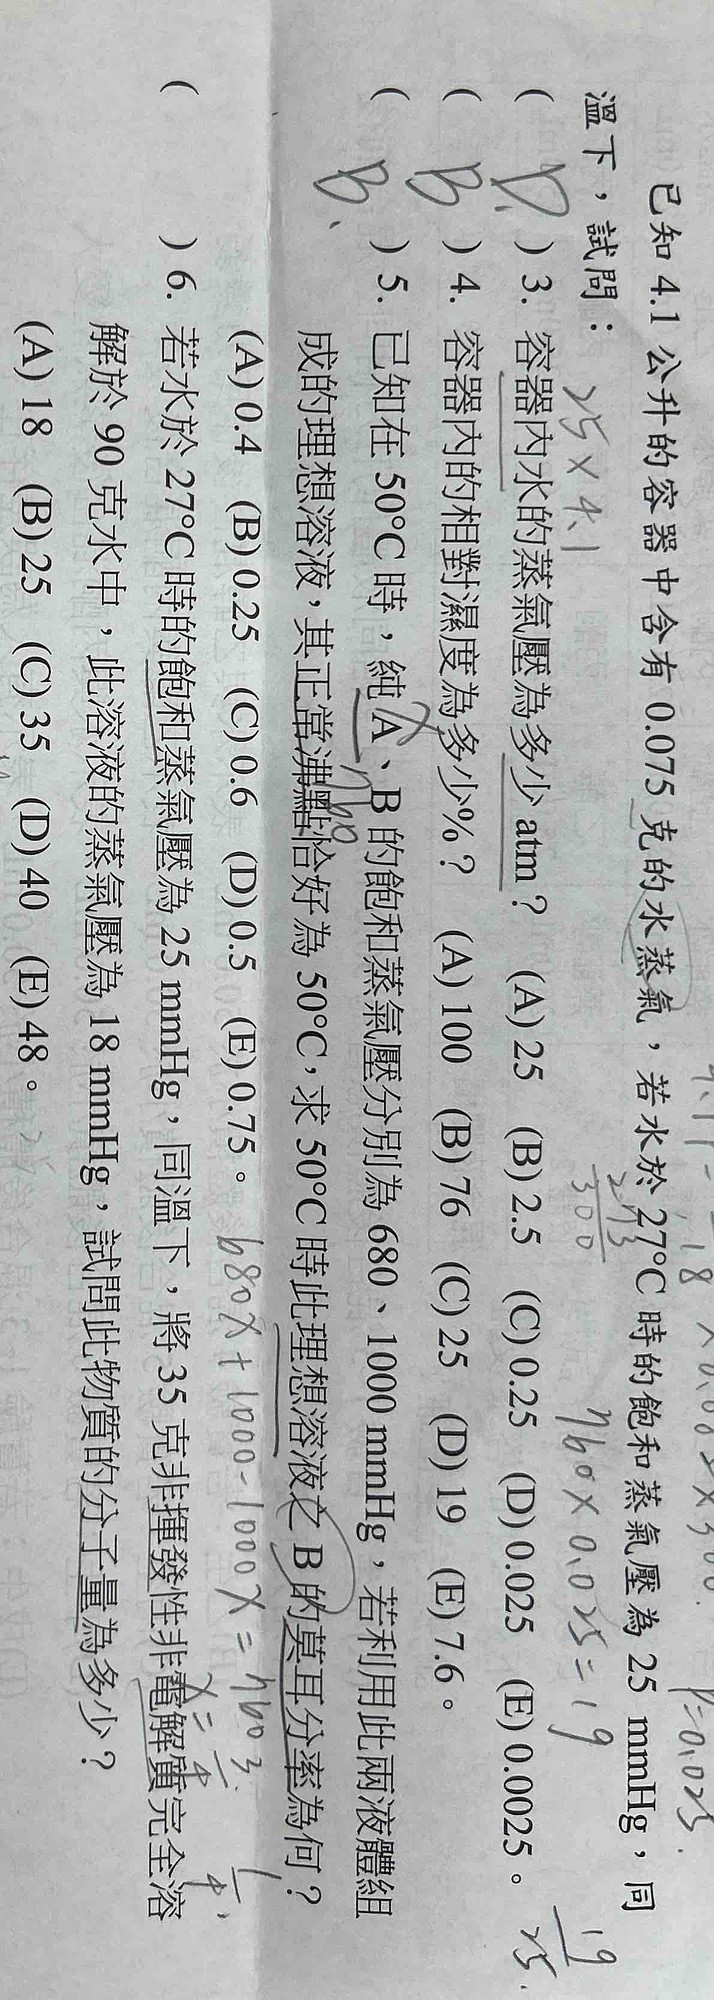 已知 4.1 公升的容器中含有 0.075 克的水蒸氣，若水於 27°C 時的飽和蒸氣壓為 25 mmHg，同
溫下，試問：
25 × 4.1
273
300
760 × 0.025 = 19
P=0.025
19
25
( D ) 3. 容器內水的蒸氣壓為多少 atm？ (A) 25 (B) 2.5 (C) 0.25 (D) 0.025 (E) 0.0025。
( B ) 4. 容器內的相對濕度為多少%？ (A) 100 (B) 76 (C) 25 (D) 19 (E) 7.6。
( B ) 5. 已知在 50°C 時，純 A、B 的飽和蒸氣壓分別為 680、1000 mmHg，若利用此兩液體組
成的理想溶液，其正常沸點恰好為 50°C，求 50°C 時此理想溶液之 B 的莫耳分率為何？
760
(A) 0.4 (B) 0.25 (C) 0.6 (D) 0.5 (E) 0.75。
680X + 1000 - 1000X = 760
X = 3/4
1/4
( ) 6. 若水於 27°C 時的飽和蒸氣壓為 25 mmHg，同溫下，將 35 克非揮發性非電解質完全溶
解於 90 克水中，此溶液的蒸氣壓為 18 mmHg，試問此物質的分子量為多少？
(A) 18 (B) 25 (C) 35 (D) 40 (E) 48。